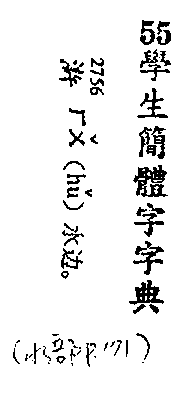 55學生簡體字字典
2756
浒 ㄏㄨˇ (hǔ) 水边。
(水 部 171)